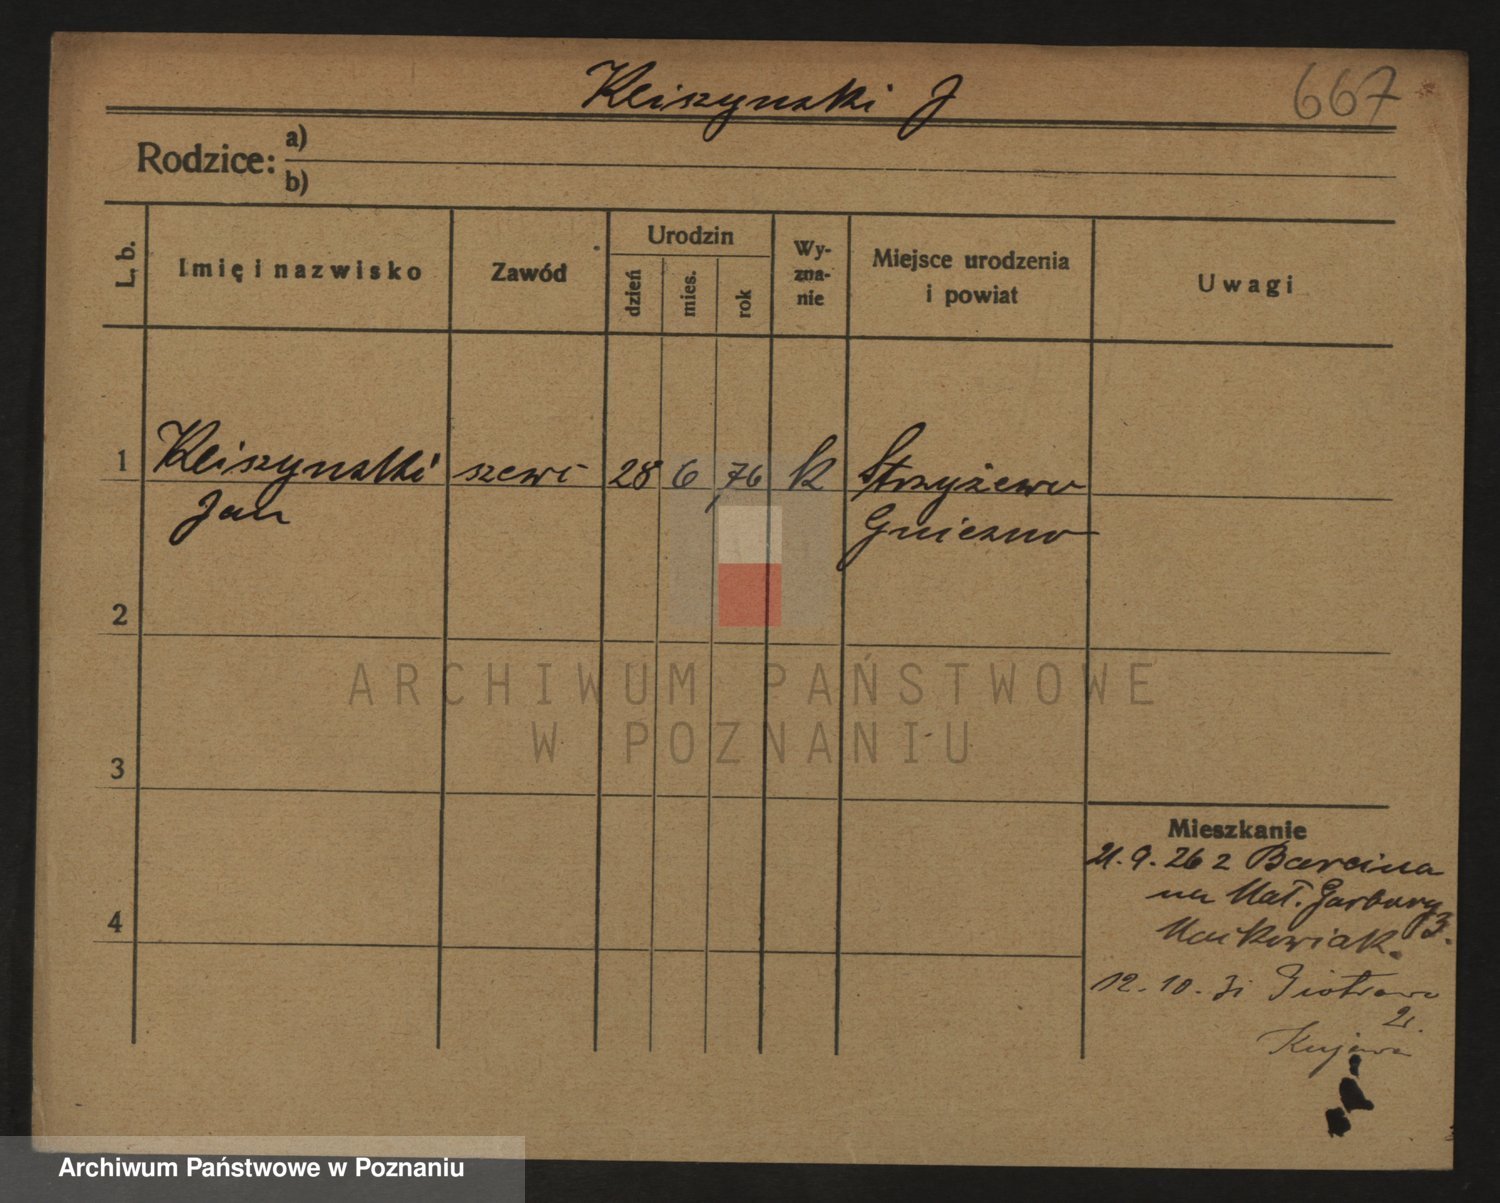 Kliszynski J
667
Rodzice:
a)
b)
L. b.
Imię i nazwisko
Zawód
Urodzin
dzień
mies.
rok
Wy-
zna-
nie
Miejsce urodzenia
i powiat
Uwagi
1
Kliszynski
szewc
28
6
76
k
Strzyżewo
Jan
Gniezno
2
3
4
Mieszkanie
21.9.26 z Barcina
na Mał. Garbary
3.
Maćkowiak.
12.10.31 Piotrowo
2.
Kujawa
ARCHIWUM PAŃSTWOWE
W POZNANIU
Archiwum Państwowe w Poznaniu